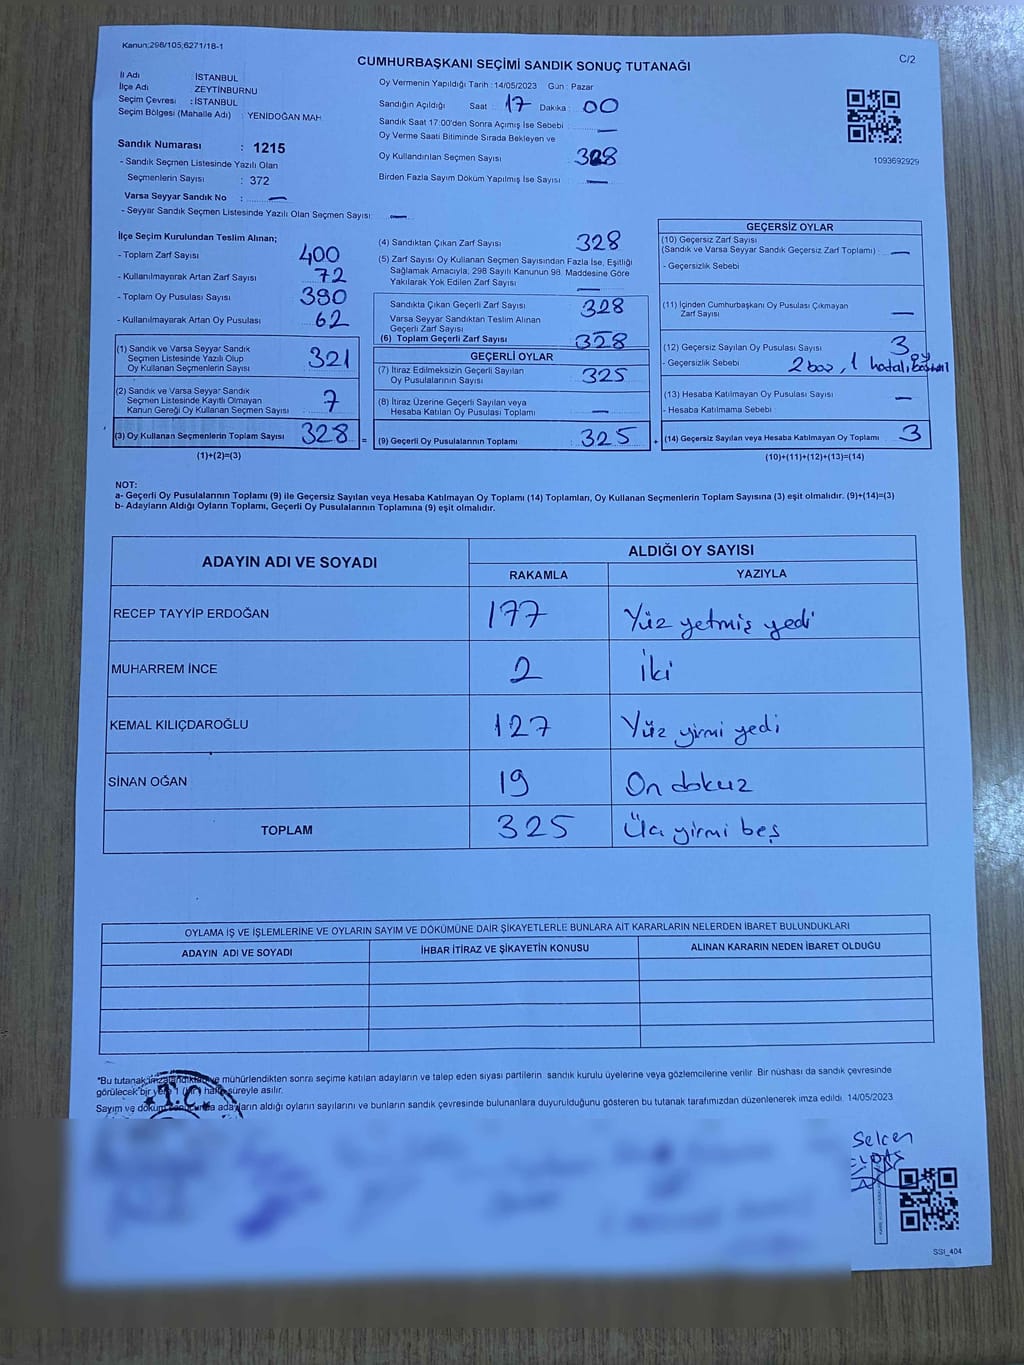 Kanun;298/105;6271/18-1
CUMHURBAŞKANI SEÇİMİ SANDIK SONUÇ TUTANAĞI
C/2
İl Adı : İSTANBUL
İlçe Adı : ZEYTİNBURNU
Seçim Çevresi : İSTANBUL
Seçim Bölgesi (Mahalle Adı) : YENİDOĞAN MAH
Sandık Numarası : 1215
- Sandık Seçmen Listesinde Yazılı Olan
Seçmenlerin Sayısı : 372
Varsa Seyyar Sandık No : —
- Seyyar Sandık Seçmen Listesinde Yazılı Olan Seçmen Sayısı: —
Oy Vermenin Yapıldığı Tarih : 14/05/2023 Gün : Pazar
Sandığın Açıldığı Saat : 17 Dakika : 00
Sandık Saat 17:00'den Sonra Açmış İse Sebebi : —
Oy Verme Saati Bitiminde Sırada Bekleyen ve
Oy Kullandırılan Seçmen Sayısı : 328
Birden Fazla Sayım Döküm Yapılmış İse Sayısı : —
1093692929
İlçe Seçim Kurulundan Teslim Alınan;
- Toplam Zarf Sayısı : 400
- Kullanılmayarak Artan Zarf Sayısı : 72
- Toplam Oy Pusulası Sayısı : 390
- Kullanılmayarak Artan Oy Pusulası : 62
(1) Sandık ve Varsa Seyyar Sandık
Seçmen Listesinde Yazılı Olup
Oy Kullanan Seçmenlerin Sayısı : 321
(2) Sandık ve Varsa Seyyar Sandık
Seçmen Listesinde Kayıtlı Olmayan
Kanun Gereği Oy Kullanan Seçmen Sayısı : 7
(3) Oy Kullanan Seçmenlerin Toplam Sayısı : 328 =
(1)+(2)=(3)
(4) Sandıktan Çıkan Zarf Sayısı : 328
(5) Zarf Sayısı Oy Kullanan Seçmen Sayısından Fazla İse, Eşitliği
Sağlamak Amacıyla; 298 Sayılı Kanunun 98. Maddesine Göre
Yakılarak Yok Edilen Zarf Sayısı : —
Sandıkta Çıkan Geçerli Zarf Sayısı : 328
Varsa Seyyar Sandıktan Teslim Alınan
Geçerli Zarf Sayısı
(6) Toplam Geçerli Zarf Sayısı : 328
GEÇERLİ OYLAR
(7) İtiraz Edilmeksizin Geçerli Sayılan
Oy Pusulalarının Sayısı : 325
(8) İtiraz Üzerine Geçerli Sayılan veya
Hesaba Katılan Oy Pusulası Toplamı : —
(9) Geçerli Oy Pusulalarının Toplamı : 325 +
GEÇERSİZ OYLAR
(10) Geçersiz Zarf Sayısı
(Sandık ve Varsa Seyyar Sandık Geçersiz Zarf Toplamı) : —
- Geçersizlik Sebebi
(11) İçinden Cumhurbaşkanı Oy Pusulası Çıkmayan
Zarf Sayısı : —
(12) Geçersiz Sayılan Oy Pusulası Sayısı : 3
- Geçersizlik Sebebi : 2 boş, 1 hatalı oy
(13) Hesaba Katılmayan Oy Pusulası Sayısı : —
- Hesaba Katılmama Sebebi
(14) Geçersiz Sayılan veya Hesaba Katılmayan Oy Toplamı : 3
(10)+(11)+(12)+(13)=(14)
NOT:
a- Geçerli Oy Pusulalarının Toplamı (9) ile Geçersiz Sayılan veya Hesaba Katılmayan Oy Toplamı (14) Toplamları, Oy Kullanan Seçmenlerin Toplam Sayısına (3) eşit olmalıdır. (9)+(14)=(3)
b- Adayların Aldığı Oyların Toplamı, Geçerli Oy Pusulalarının Toplamına (9) eşit olmalıdır.
ADAYIN ADI VE SOYADI
ALDIĞI OY SAYISI
RAKAMLA YAZIYLA
RECEP TAYYİP ERDOĞAN 177 Yüz yetmiş yedi
MUHARREM İNCE 2 İki
KEMAL KILIÇDAROĞLU 127 Yüz yirmi yedi
SİNAN OĞAN 19 On dokuz
TOPLAM 325 Üç yirmi beş
OYLAMA İŞ VE İŞLEMLERİNE VE OYLARIN SAYIM VE DÖKÜMÜNE DAİR ŞİKAYETLERLE BUNLARA AİT KARARLARIN NELERDEN İBARET BULUNDUKLARI
ADAYIN ADI VE SOYADI İHBAR İTİRAZ VE ŞİKAYETİN KONUSU ALINAN KARARIN NEDEN İBARET OLDUĞU
*Bu tutanak imzalandıktan ve mühürlendikten sonra seçime katılan adayların ve talep eden siyasi partilerin sandık kurulu üyelerine veya gözlemcilerine verilir. Bir nüshası da sandık çevresinde
görülecek bir yere 1 (bir) hafta süreyle asılır.
Sayım ve döküm sonucunda adayların aldığı oyların sayılarını ve bunların sandık çevresinde bulunanlara duyurulduğunu gösteren bu tutanak tarafımızdan düzenlenerek imza edildi. 14/05/2023
T.C.
Selcen
SSI_404